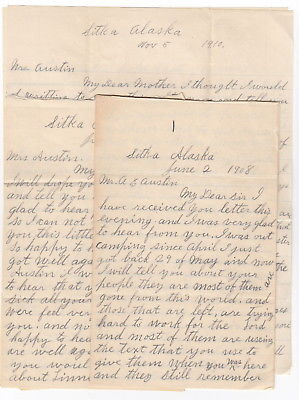 Sitka Alaska
Nov 5 1910.
Mrs Austin
My Dear Mother I thought I would
Sitka
Mrs Austin.
My
I will
and tell you
glad to hear
So I can not
you this little
Is happy to h
got well aga
Austin I w
to hear that y
Sick all you
were feel ver
you. and no
happy to hea
are well aga
you would
about Linnie
1
Sitka Alaska
June 2 1908.
Mr. A E Austin
My Dear Sir I
have received you letter this
evening and I was very glad
to hear from you. I was out
camping since April I just
got back 29 of May and now
I will tell you about your
people they are most of them are
gone from this world, and
those that are left, are trying
hard to work for the Lord
and most of them are useing
the text that you use to
give them When you was here
and they still remember